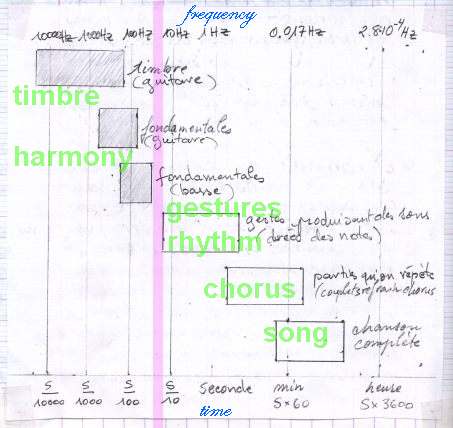 frequency
10000Hz 1000Hz 100Hz 10Hz 1Hz 0.017Hz 2.8·10⁻⁴Hz
timbre
(guitare)
timbre
fondamentales
(guitare)
harmony
fondamentales
(basse)
gestures
gestes produisant des sons
rhythm
(durée des notes)
parties qu'on répète
chorus
(couplets refrain chorus
song
chanson
complète
S/10000 S/1000 S/100 S/10 seconde min S×60 heure S×3600
time